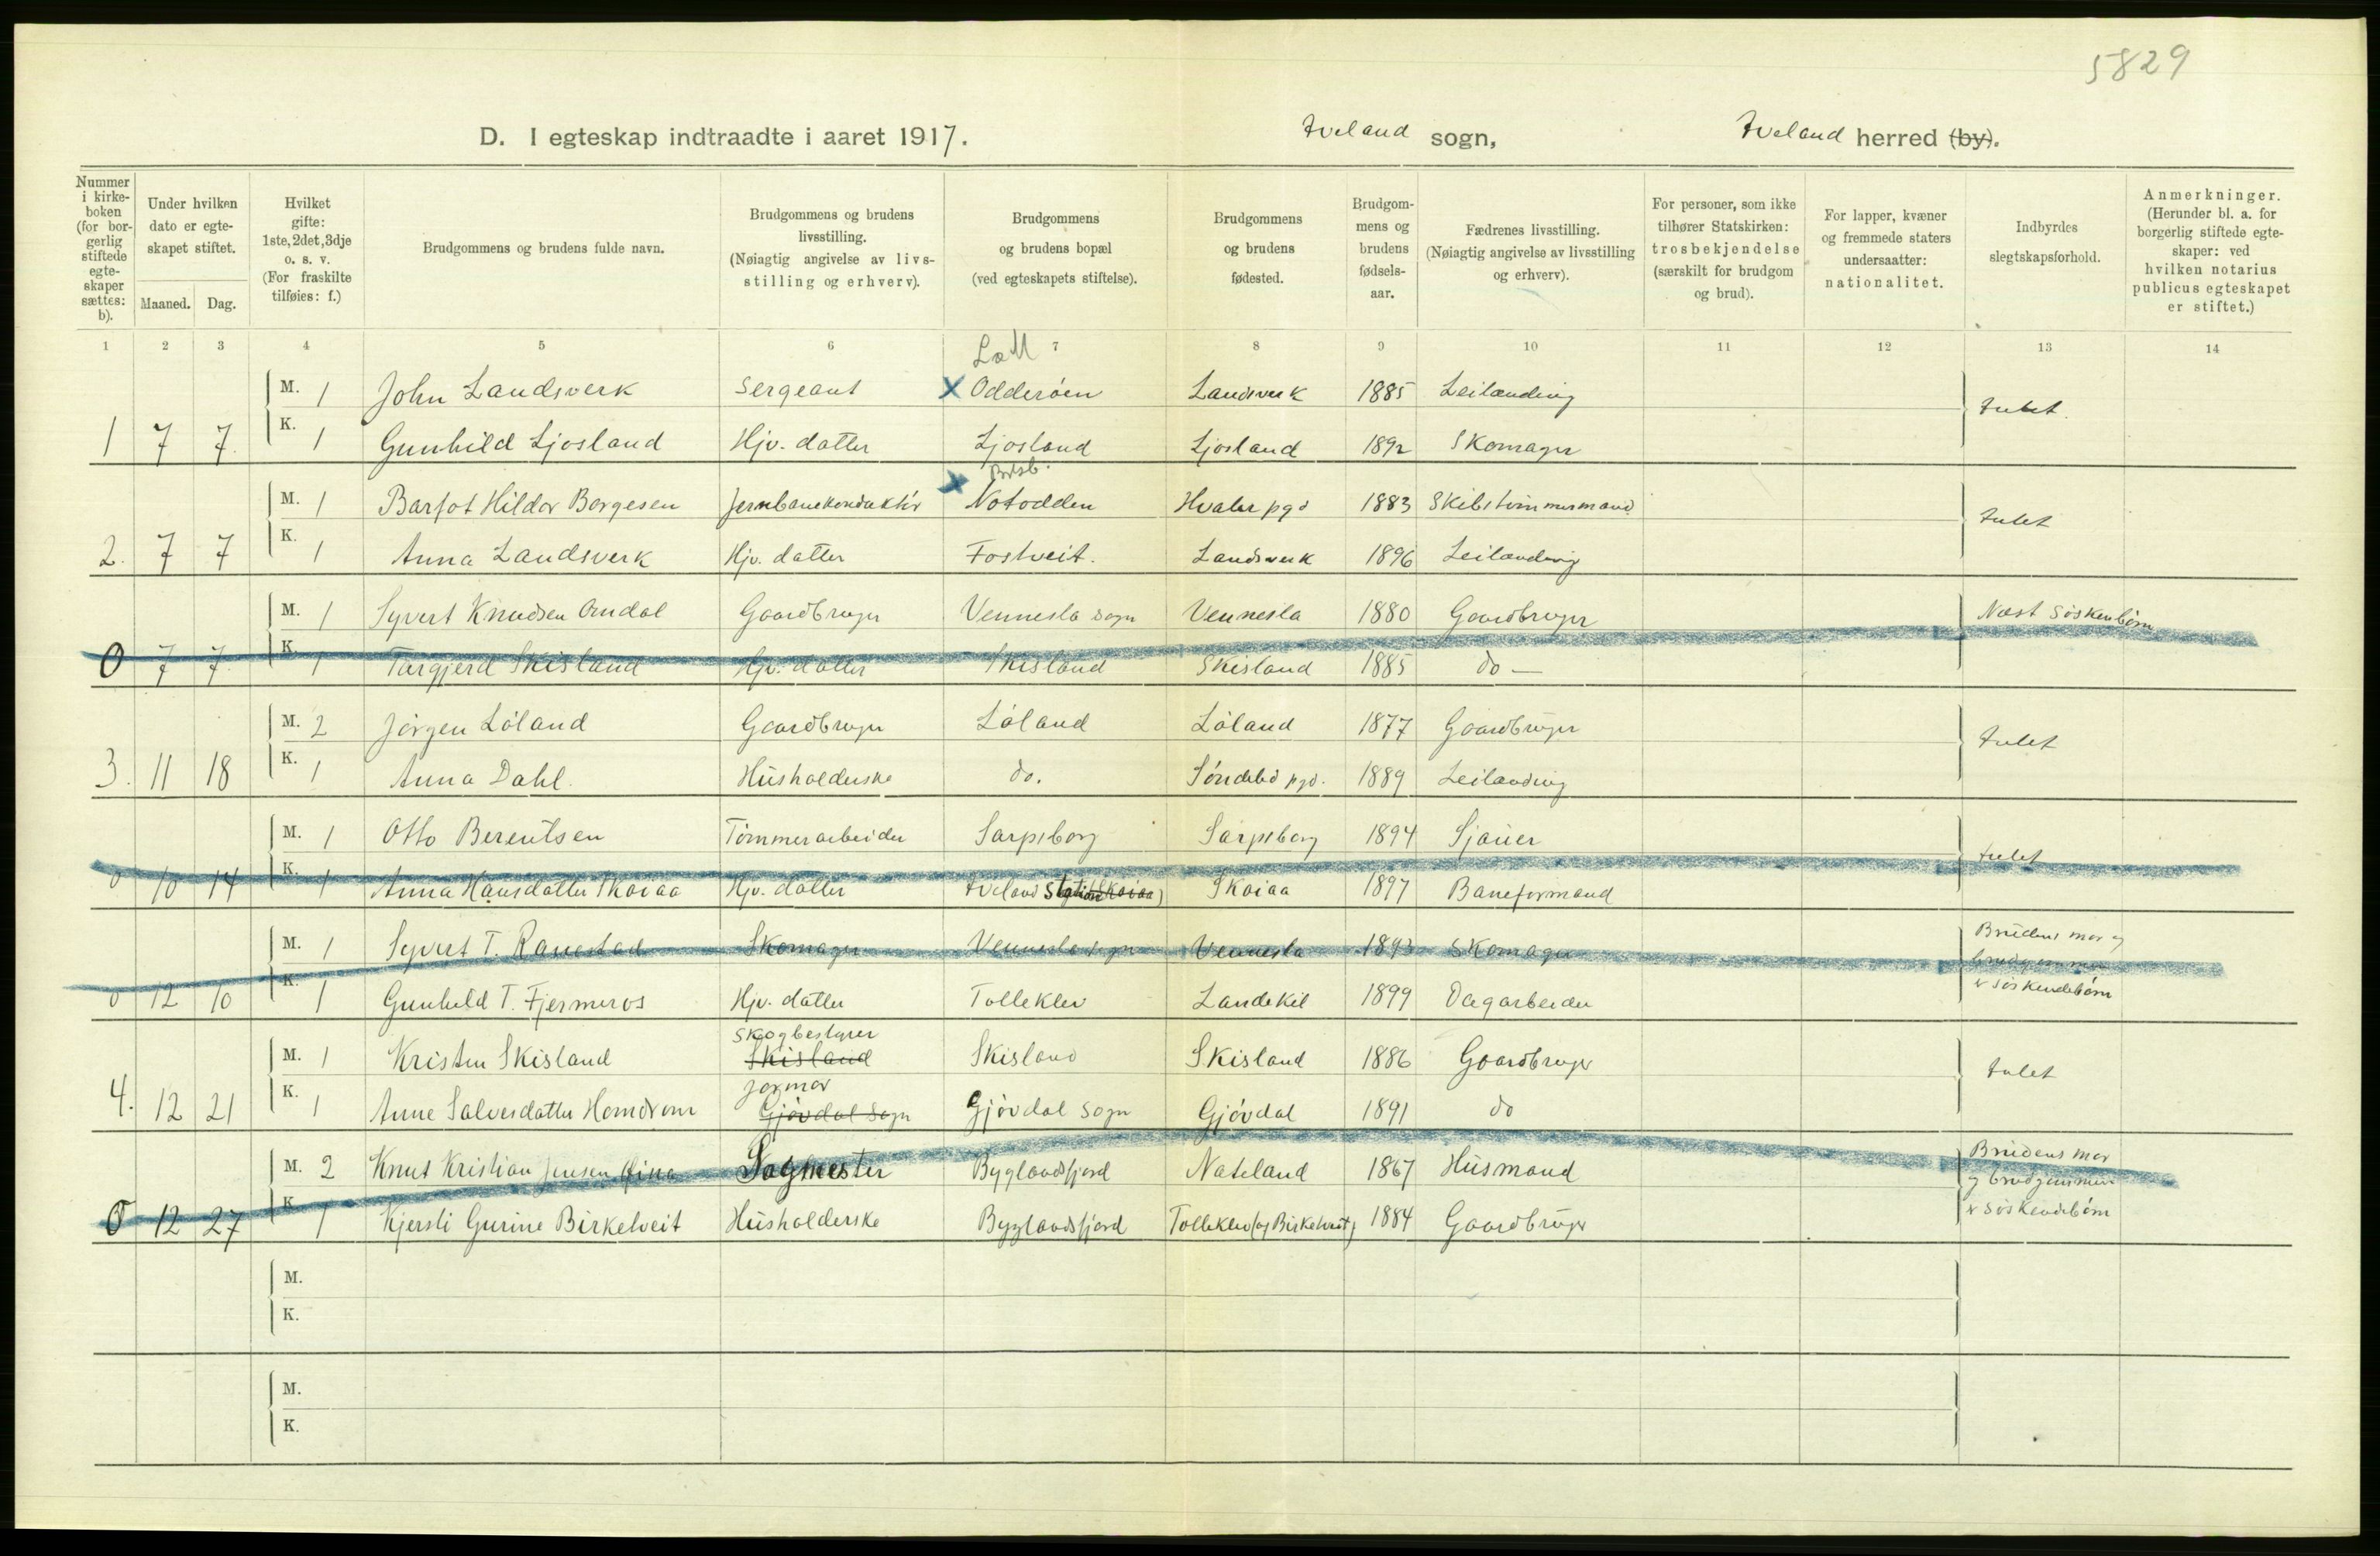 5829
D. I egteskap indtraadte i aaret 1917. Iveland sogn, Iveland herred (by).
Nummer i kirkeboken (for borgerlig stiftede egteskaper sættes: b). Under hvilken dato er egteskapet stiftet. Maaned. Dag. Hvilket gifte: 1ste, 2det, 3dje o. s. v. (For fraskilte tilføies: f.) Brudgommens og brudens fulde navn. Brudgommens og brudens livsstilling. (Nøiagtig angivelse av livsstilling og erhverv). Brudgommens og brudens bopæl (ved egteskapets stiftelse). Brudgommens og brudens fødested. Brudgommens og brudens fødselsaar. Fædrenes livsstilling. (Nøiagtig angivelse av livsstilling og erhverv). For personer, som ikke tilhører Statskirken: trosbekjendelse (særskilt for brudgom og brud). For lapper, kvæner og fremmede staters undersaatter: nationalitet. Indbyrdes slegtskapsforhold. Anmerkninger. (Herunder bl. a. for borgerlig stiftede egteskaper: ved hvilken notarius publicus egteskapet er stiftet.)
1 2 3 4 5 6 7 8 9 10 11 12 13 14
M. 1 John Landsverk Sergeant X Odderöen Landsverk 1885 Leilænding Intet.
1 7 7. K. 1 Gunhild Ljosland Hjv. datter Ljosland Ljosland 1892 Skomager
M. 1 Barfot Hildor Borgesen Jernbanekonduktör X Notodden Hvaler pgd 1883 Skibstömmermand Intet
2. 7 7 K. 1 Anna Landsverk Hjv. datter Fostveit. Landsverk 1896 Leilænding
M. 1 Syvert Knudsen Omdal Gaardbruger Vennesla sogn Vennesla 1880 Gaardbruger Næst söskenbörn
0 7 7. K. 1 Targjerd Skisland Hjv. datter Skisland Skisland 1885 do —
M. 2 Jörgen Löland Gaardbruger Löland Löland 1877 Gaardbruger Intet
3. 11 18 K. 1 Anna Dahl. Husholderske do. Söndeled pgd. 1889 Leilænding
M. 1 Otto Berentsen Tömmerarbeider Sarpsborg Sarpsborg 1894 Sjauer Intet
0 10 14 K. 1 Anna Hansdatter Skaiaa Hjv. datter Iveland Station (Skaiaa) Skaiaa 1897 Baneformand
M. 1 Syvert T. Ravestad Skomager Vennesla sogn Vennesla 1893 Skomager Brudens mor og brudgommen
0 12 10 K. 1 Gunhild T. Fjermeros Hjv. datter Tolleklev Landekil 1899 Dagarbeider er söskendebörn
Skogbestyrer
M. 1 Kristen Skisland Skisland Skisland Skisland 1886 Gaardbruger Intet
Jormor
4. 12 21 K. 1 Anne Salvesdatter Homdrom Gjövdal Sogn Gjövdal Sogn Gjövdal 1891 do
M. 2 Knut Kristian Jensen Öina Sagmester Byglandsfjord Nateland 1867 Husmand Brudens mor og brudgommen
0 12 27 K. 1 Kjersti Gurine Birketveit Husholderske Byglandsfjord Tolleklev (og Birketveit) 1884 Gaardbruger er söskendebörn
M.
K.
M.
K.